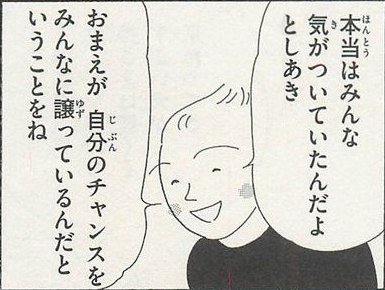 本当はみんな
気がついていたんだよ
としあき
おまえが 自分のチャンスを
みんなに譲っているんだと
いうことをね